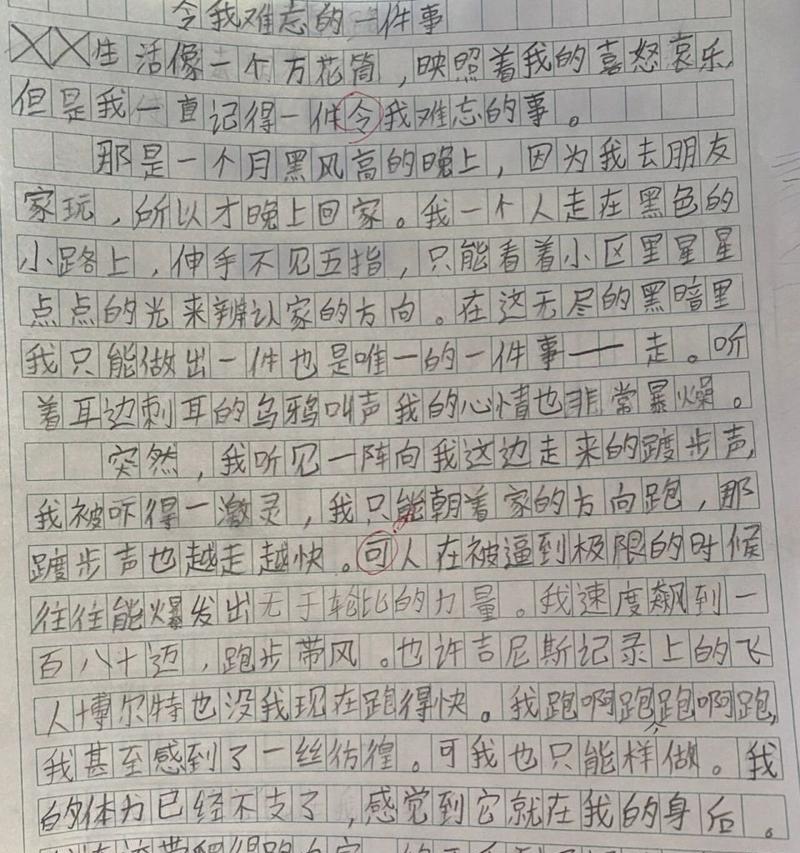 令我难忘的一件事
生活像一个万花筒，映照着我的喜怒哀乐，
但是我一直记得一件令我难忘的事。
那是一个月黑风高的晚上，因为我去朋友
家玩，所以才晚上回家。我一个人走在黑色的
小路上，伸手不见五指，只能看着小区里星星
点点的光来辨认家的方向。在这无尽的黑暗里
我只能做出一件也是唯一的一件事——走。听
着耳边刺耳的乌鸦叫声我的心情也非常暴燥。
突然，我听见一阵向我这边走来的踱步声，
我被吓得一激灵，我只能朝着家的方向跑，那
踱步声也越走越快。可人在被逼到极限的时候
往往能爆发出无于轮比的力量。我速度飙到一
百八十迈，跑步带风。也许吉尼斯记录上的飞
人博尔特也没我现在跑得快。我跑啊跑跑啊跑，
我甚至感到了一丝彷徨。可我也只能样做。我
的体力已经不支了，感觉到它就在我的身后。